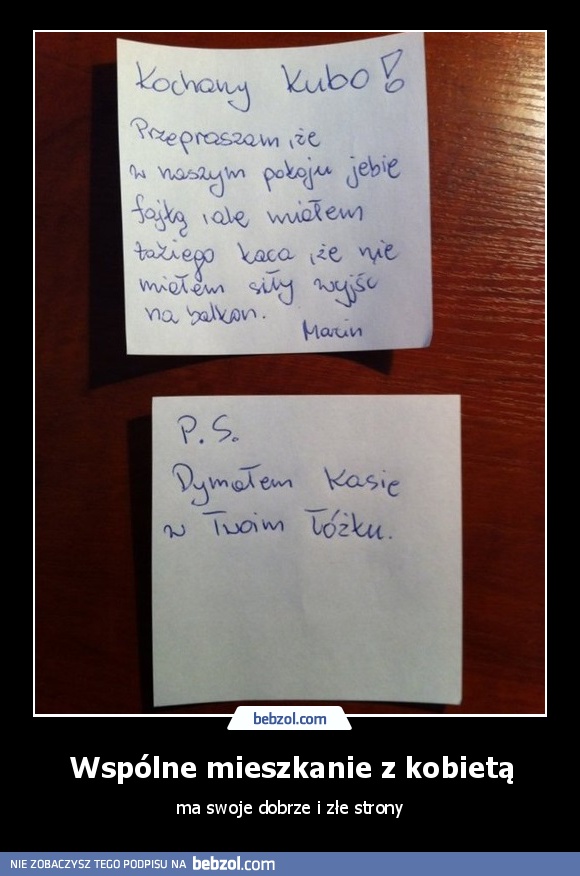 Kochany Kubo!
Przepraszam, że
w naszym pokoju jebie
fajką, ale miałem
takiego kaca, że nie
miałem siły wyjść
na balkon.
Marcin
P.S.
Dymałem Kasię
w Twoim łóżku.
bebzol.com
Wspólne mieszkanie z kobietą
ma swoje dobrze i złe strony
NIE ZOBACZYSZ TEGO PODPISU NA bebzol.com